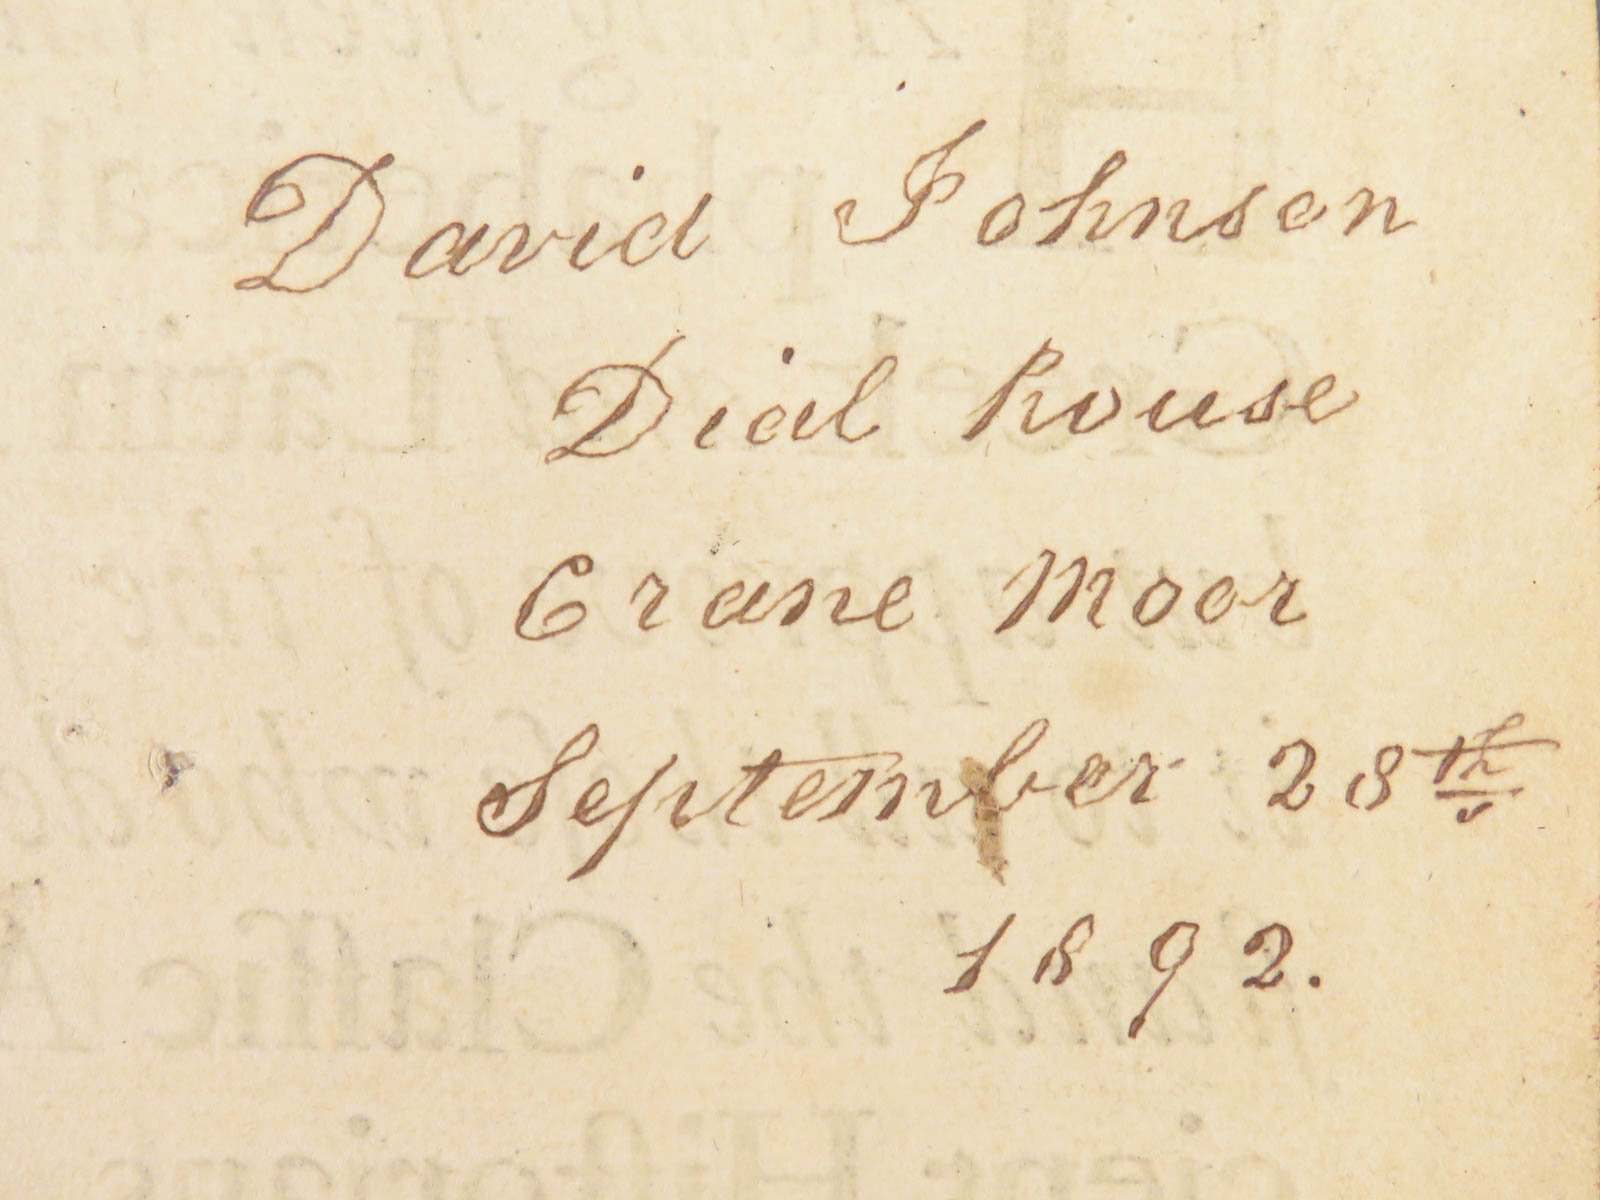 David Johnson
Dial house
Crane Moor
September 28th
1892.